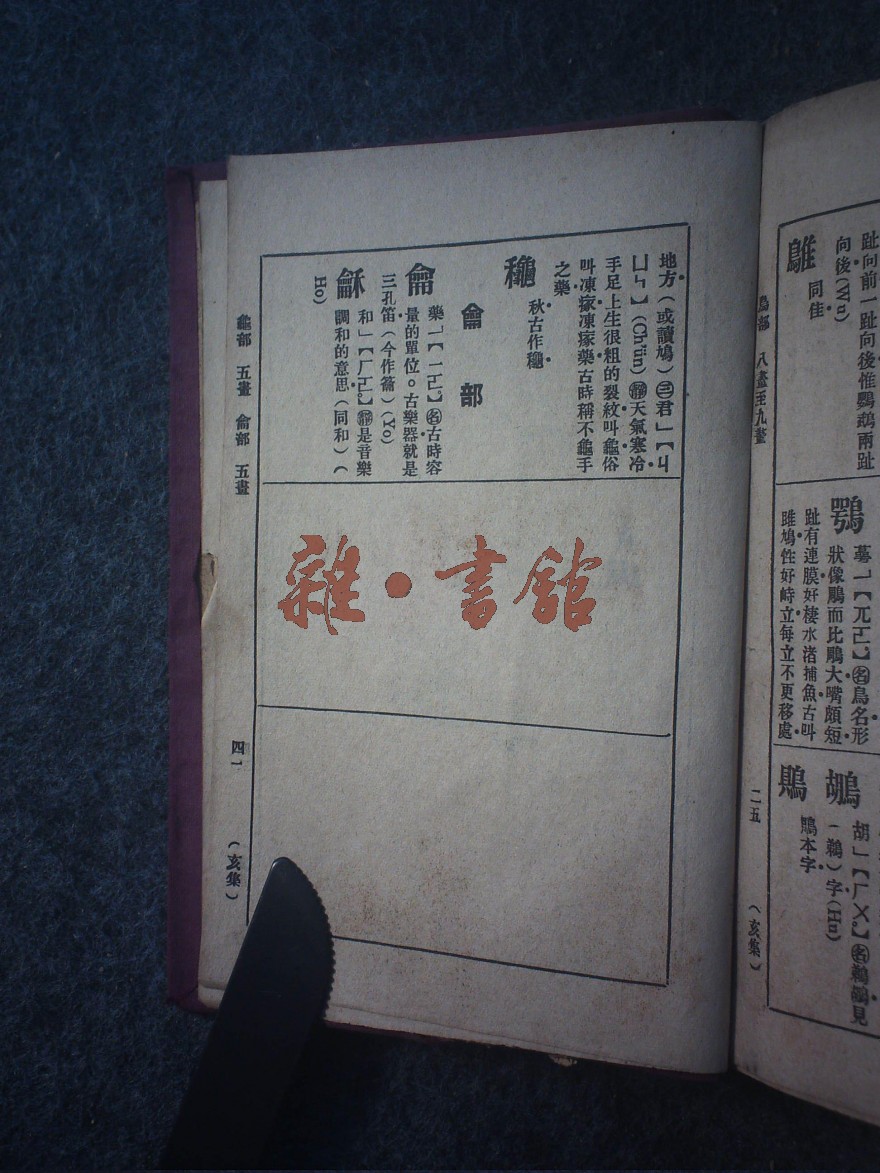 地方(或讀鳩)㊂君」【ㄐ
ㄩㄣ】(Ch'ün)靜天氣寒冷
手足上生很粗的裂紋叫龜俗
叫凍瘃凍瘃藥古時稱不龜手
之藥
龝 秋古作龝
龠部
龠 藥」【ㄧㄛ】名古時容
量的單位。古樂器就是
三孔笛(今作籥)(Yo)
龢 和」【ㄏㄛ】靜是音樂
調和的意思(同和)(
Ho)
龜部 五畫 龠部 五畫
四一
(亥集)
雜·書館
趾向前一趾向後惟鸚鵡兩趾
向後(Wu)
鵻 同隹
鶚 萼」【ㄫㄛ】名鳥名形
狀像鵰而比鵰大嘴頗短
趾有連膜好棲水渚捕魚古叫
雎鳩性好峙立每立不更移處
鶘 胡」【ㄏㄨ】名鵜鶘見
(鵜)字(Hu)
鵙本字
鳥部 八畫至九畫
二五
(亥集)